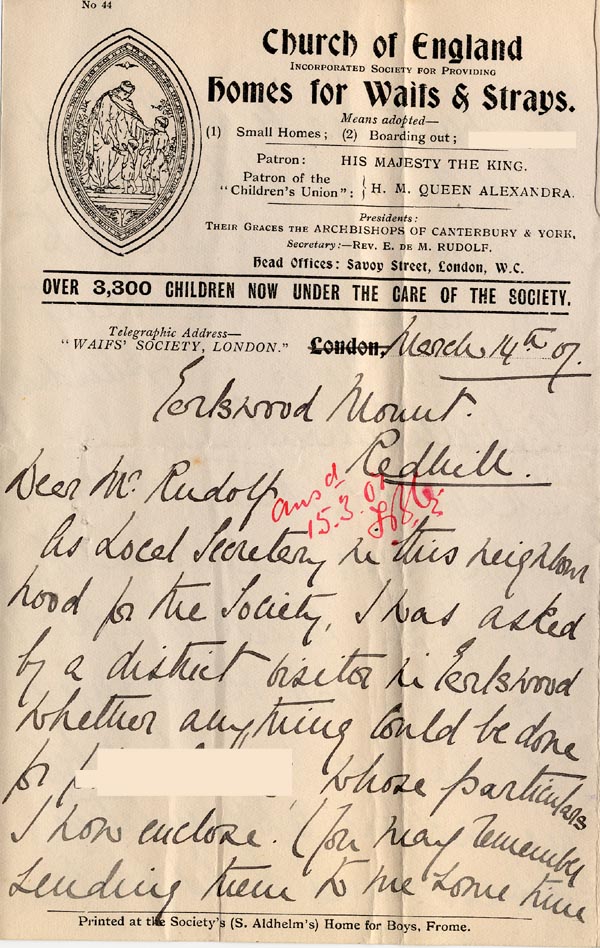 No 44
Church of England
Incorporated Society for Providing
Homes for Waifs & Strays.
Means adopted—
(1) Small Homes; (2) Boarding out;
Patron: HIS MAJESTY THE KING.
Patron of the "Children's Union": { H. M. QUEEN ALEXANDRA.
Presidents:
Their Graces the ARCHBISHOPS OF CANTERBURY & YORK,
Secretary:—Rev. E. de M. RUDOLF.
Head Offices: Savoy Street, London, W.C.
OVER 3,300 CHILDREN NOW UNDER THE CARE OF THE SOCIETY.
Telegraphic Address—
"WAIFS' SOCIETY, LONDON."
London, March 14th 07.
Earlswood Mount.
Redhill.
Dear Mr. Rudolf
ansd
15.3.07
As Local Secretary in this neighbour
hood for the Society, I was asked
by a district visitor in Earlswood
whether anything could be done
for , whose particulars
I now enclose. (You may remember
sending them to me some time
Printed at the Society's (S. Aldhelm's) Home for Boys, Frome.